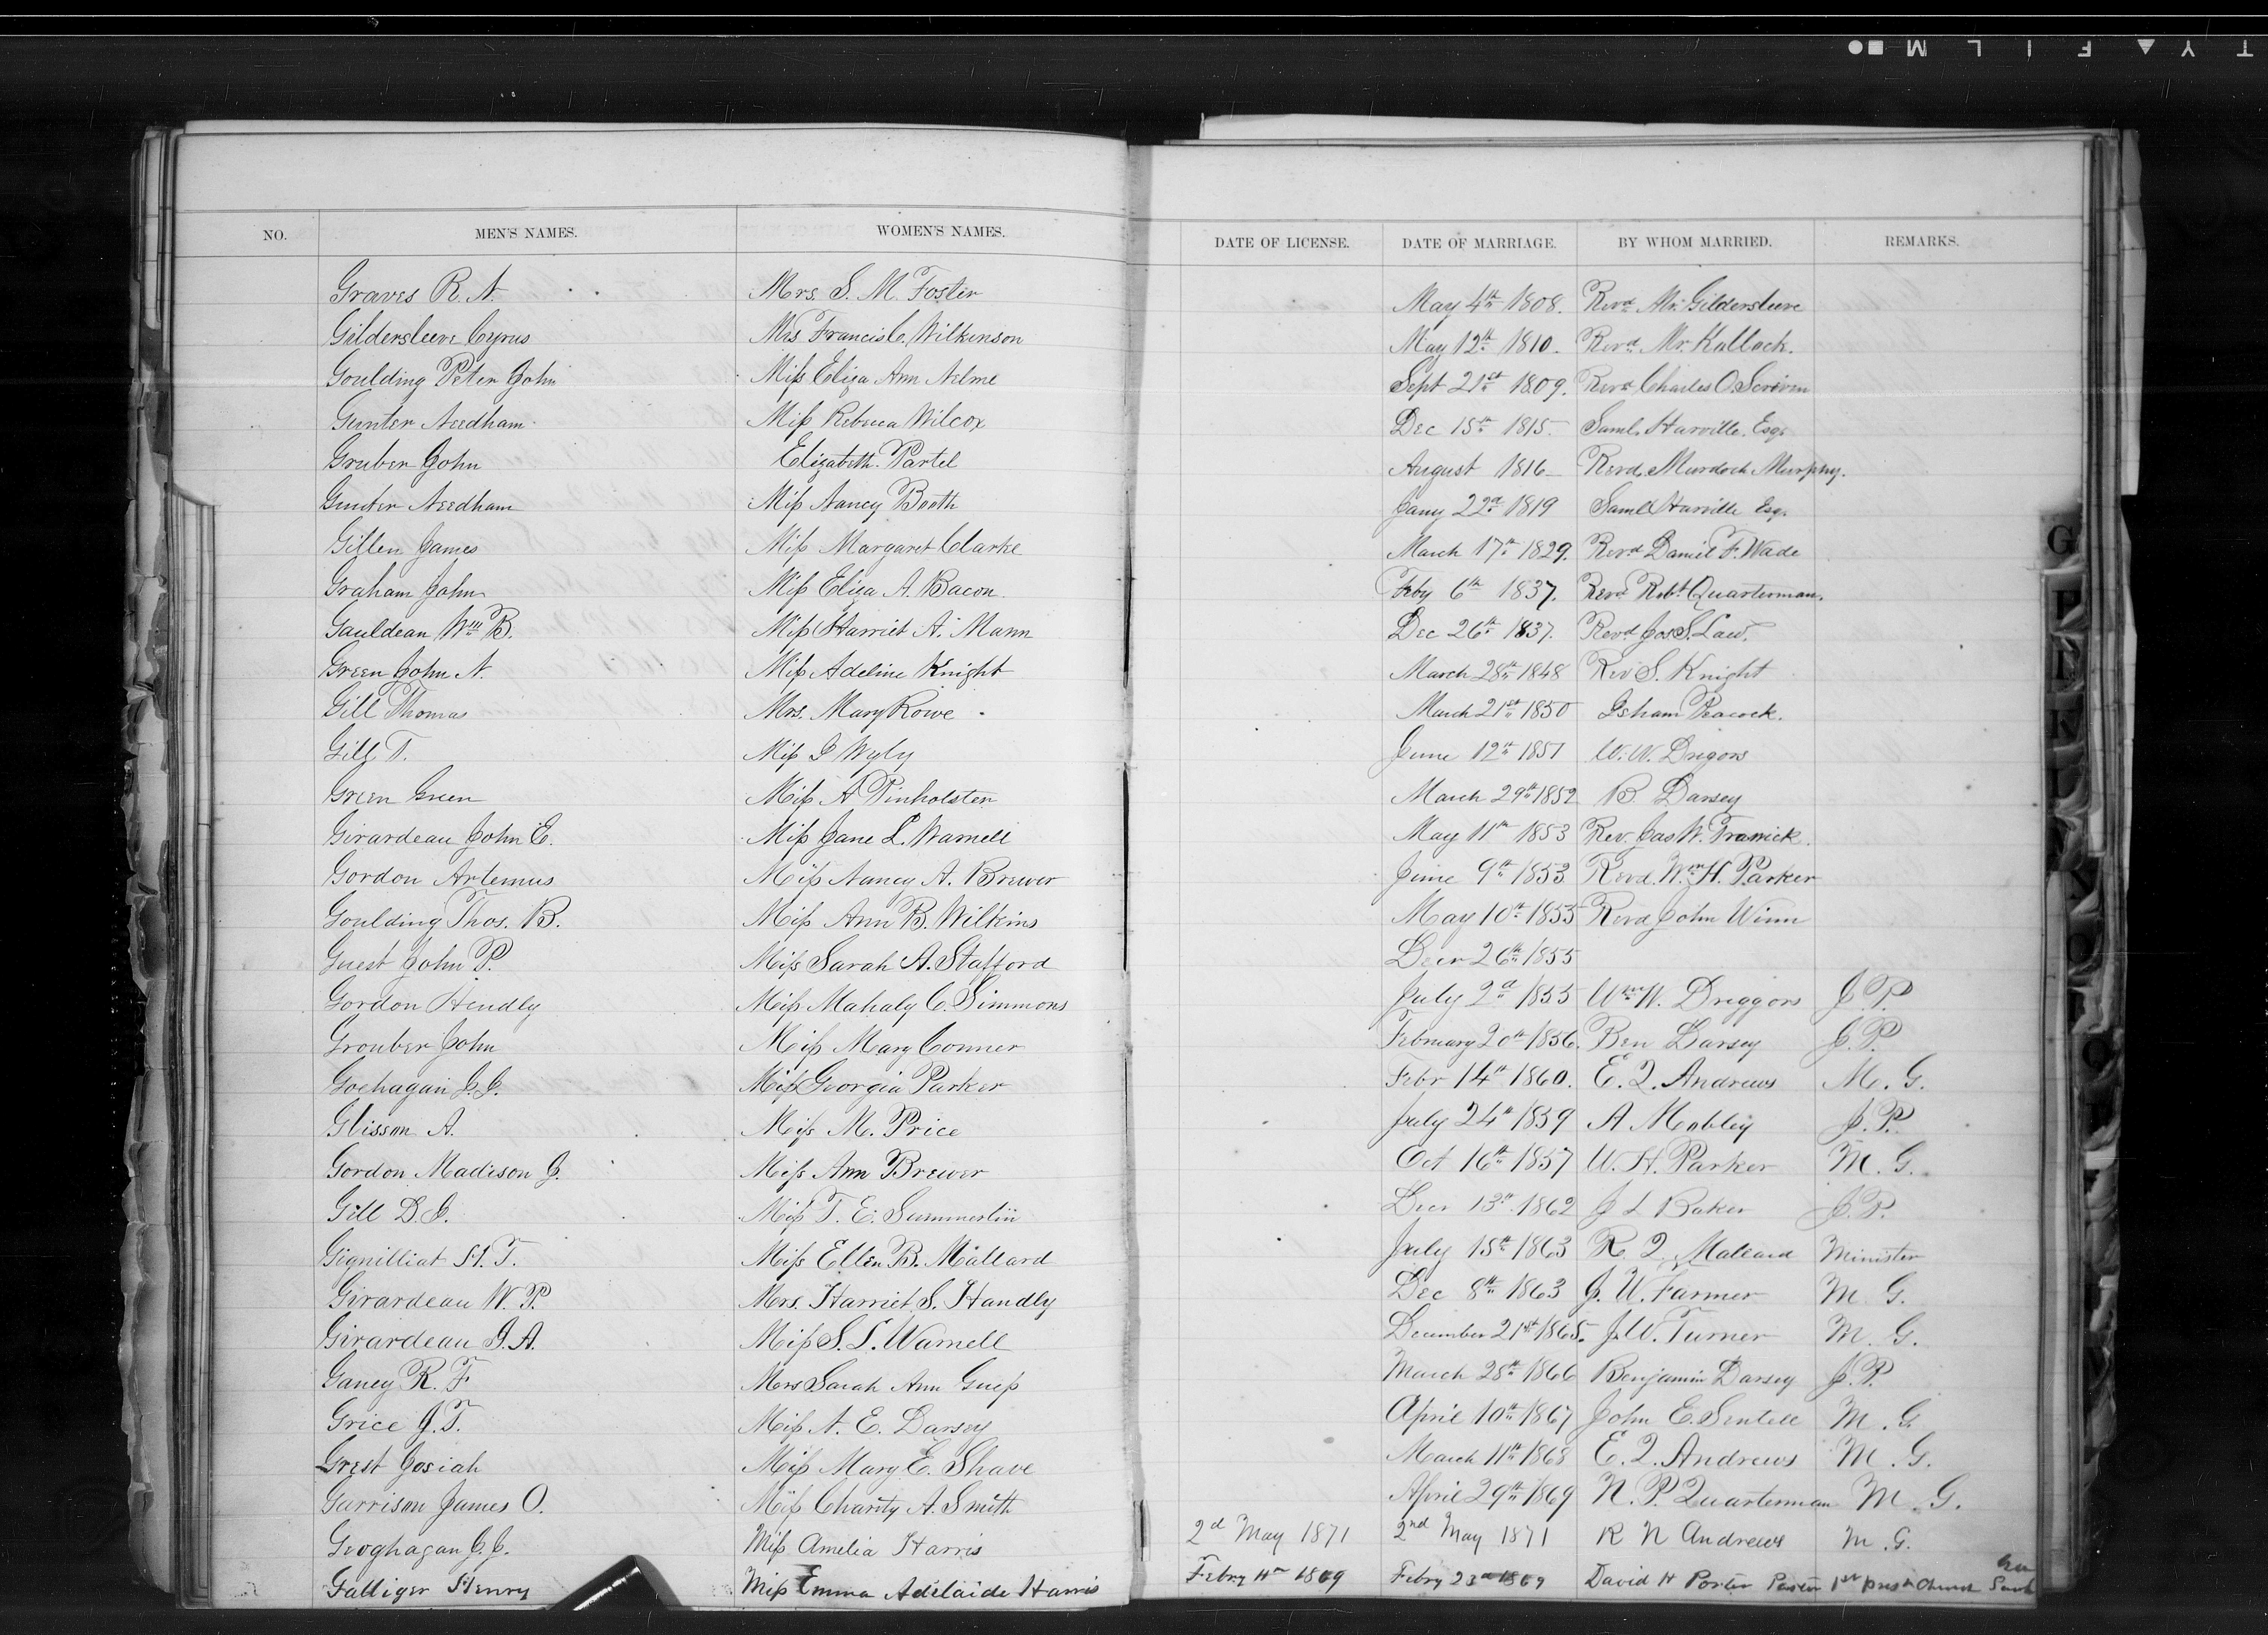 T Y ▲ F I L M ■●
NO. MEN'S NAMES. WOMEN'S NAMES. DATE OF LICENSE. DATE OF MARRIAGE. BY WHOM MARRIED. REMARKS.
Graves R. N. Mrs. S. M. Foster May 4th 1808. Revd Mr. Gildersleeve
Gildersleeve Cyrus Mrs Francis C. Wilkinson May 12th 1810. Revd Mr. Kollock.
Goulding Peter John Miss Eliza Ann Nelme Sept 21st 1809. Revd Charles O. Screven
Gunter Needham Miss Rebecca Wilcox Dec 15th 1815. Saml. Harville. Esqr
Gruber John Elizabeth Partel August 1816 Revd. Murdoch Murphy.
Gunter Needham Miss Nancy Booth Jany 22d 1819 Saml Harville Esqr
Gillen James Miss Margaret Clarke March 17th 1829. Revd Daniel F. Wade
Graham John Miss Eliza A. Bacon. Feby 6th 1837. Revd Robt Quarterman.
Gauldean Wm B. Miss Harriet A. Mann Dec 26th 1837. Revd Jos S. Law.
Green John N. Miss Adeline Knight March 28th 1848 Rev S. Knight
Gill Thomas Mrs. Mary Rowe March 21st 1850 Isham Peacock.
Gill T. Miss J Wyly June 12th 1851 W. W. Drigors
Green Green Miss A Pinholster March 29th 1852 B. Darsey
Girardeau John E. Miss Jane L. Warnell May 11th 1853 Rev. Jas W. Trawick.
Gordon Artemus Miss Nancy A. Brewer June 9th 1853 Revd. Wm H. Parker
Goulding Thos. B. Miss Ann B. Wilkins May 10th 1855 Revd John Winn
Guest John P. Miss Sarah A. Stafford Decr 26th 1855
Gordon Hendly Miss Mahaly C. Simmons July 2d 1855 Wm W. Driggors J. P.
Grouber John Miss Mary Conner February 20th 1856. Ben Darsey J. P.
Goehagan J. J. Miss Georgia Parker Febr 14th 1860. E. Q. Andrews M. G.
Glisson A. Miss M. Price July 24th 1859 A Mobley J. P.
Gordon Madison J. Miss Ann Brewer Oct 16th 1857 W. H. Parker M. G.
Gill D. J. Miss T. E. Summerlin Decr 13th 1862 J L Baker J. P.
Gignilliat H. T. Miss Ellen B. Mallard July 15th 1863 R. Q. Mallard Minister
Girardeau W. P. Mrs. Harriet S. Handly Dec 8th 1863 J. W. Farmer M. G.
Girardeau I. A. Miss S. L. Warnell December 21st 1865. J. W. Turner M. G.
Ganey R. F Mrs Sarah Ann Guess March 28th 1866 Benjamin Darsey J. P.
Grice J. T. Miss N. E. Darsey April 10th 1867 John E. Sentell M. G.
Grest Josiah Miss Mary E. Shave March 11th 1868 E. Q. Andrews M. G.
Garrison James O. Miss Charity A. Smith April 29th 1869 N. P. Quarterman M. G.
Geoghagan J. J. Miss Amelia Harris 2d May 1871 2nd May 1871 R N Andrews M. G.
Galliger Henry Miss Emma Adelaide Harris Febry 11th 1869 Febry 23d 1869 David H Porter Pastor 1st Presn Church